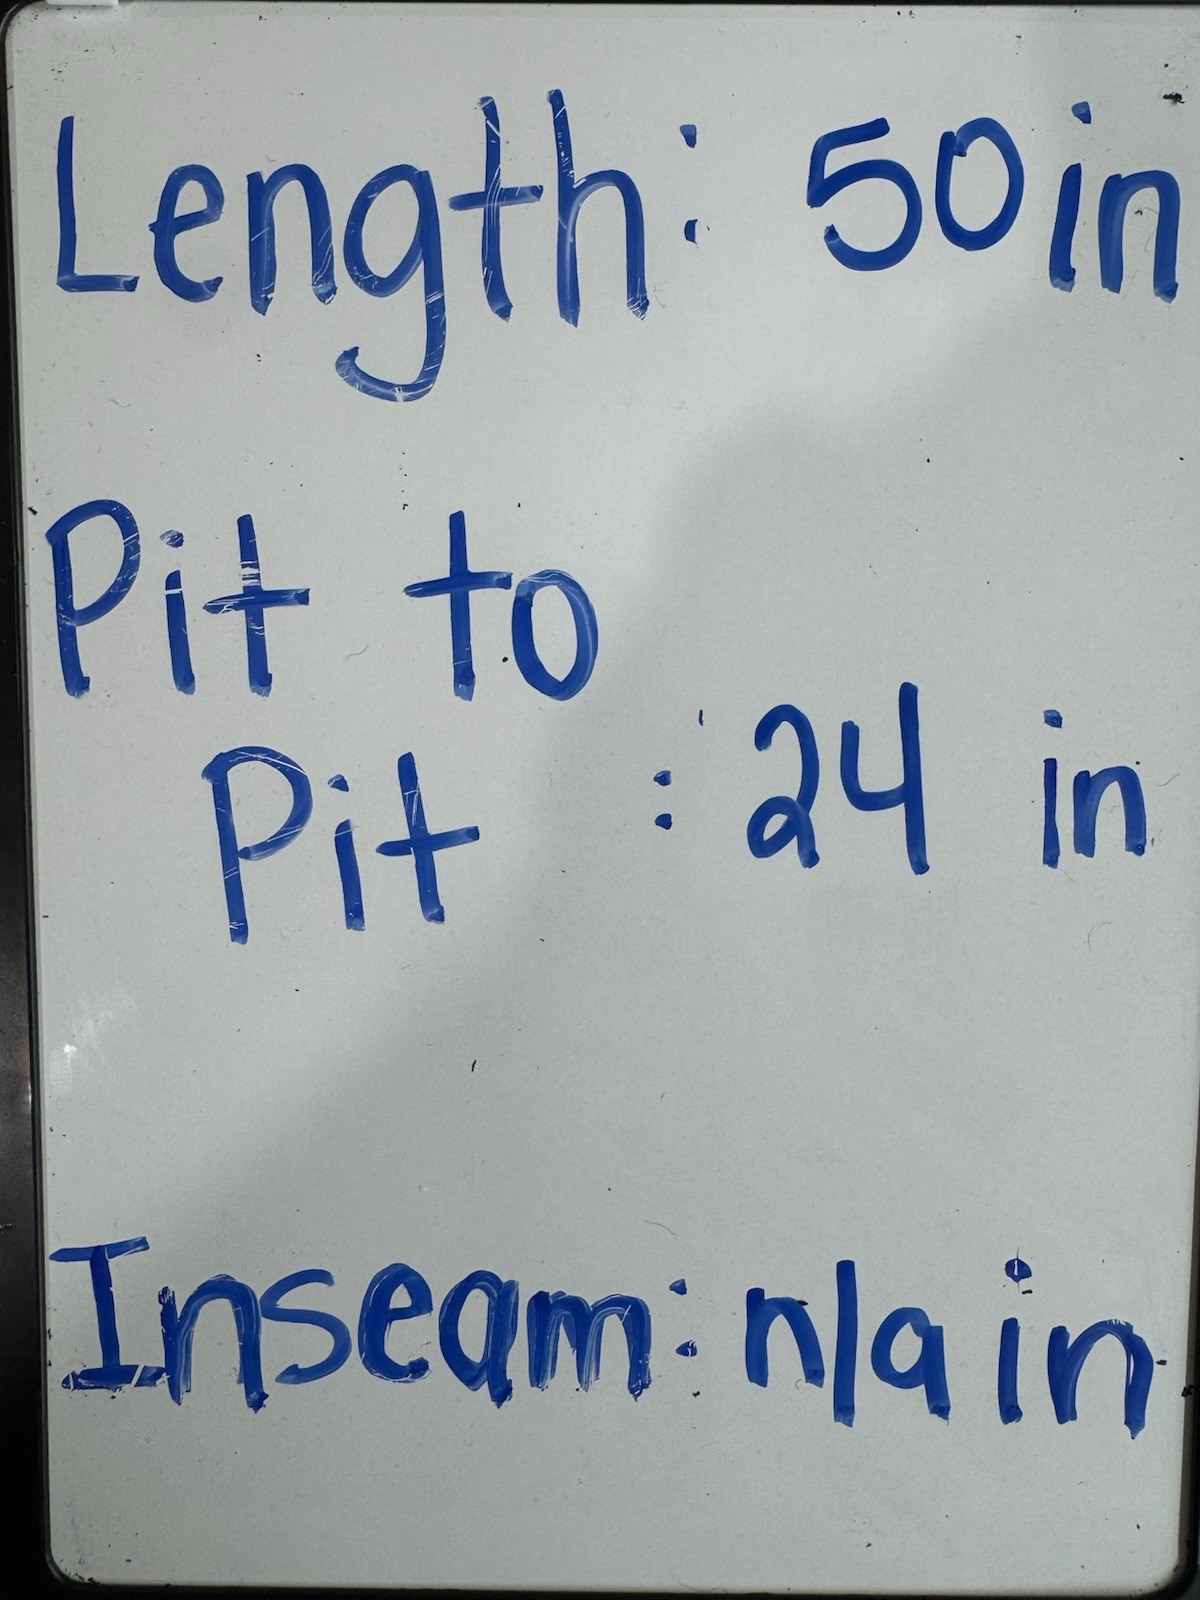 Length: 50 in
Pit to
Pit : 24 in
Inseam: n/a in